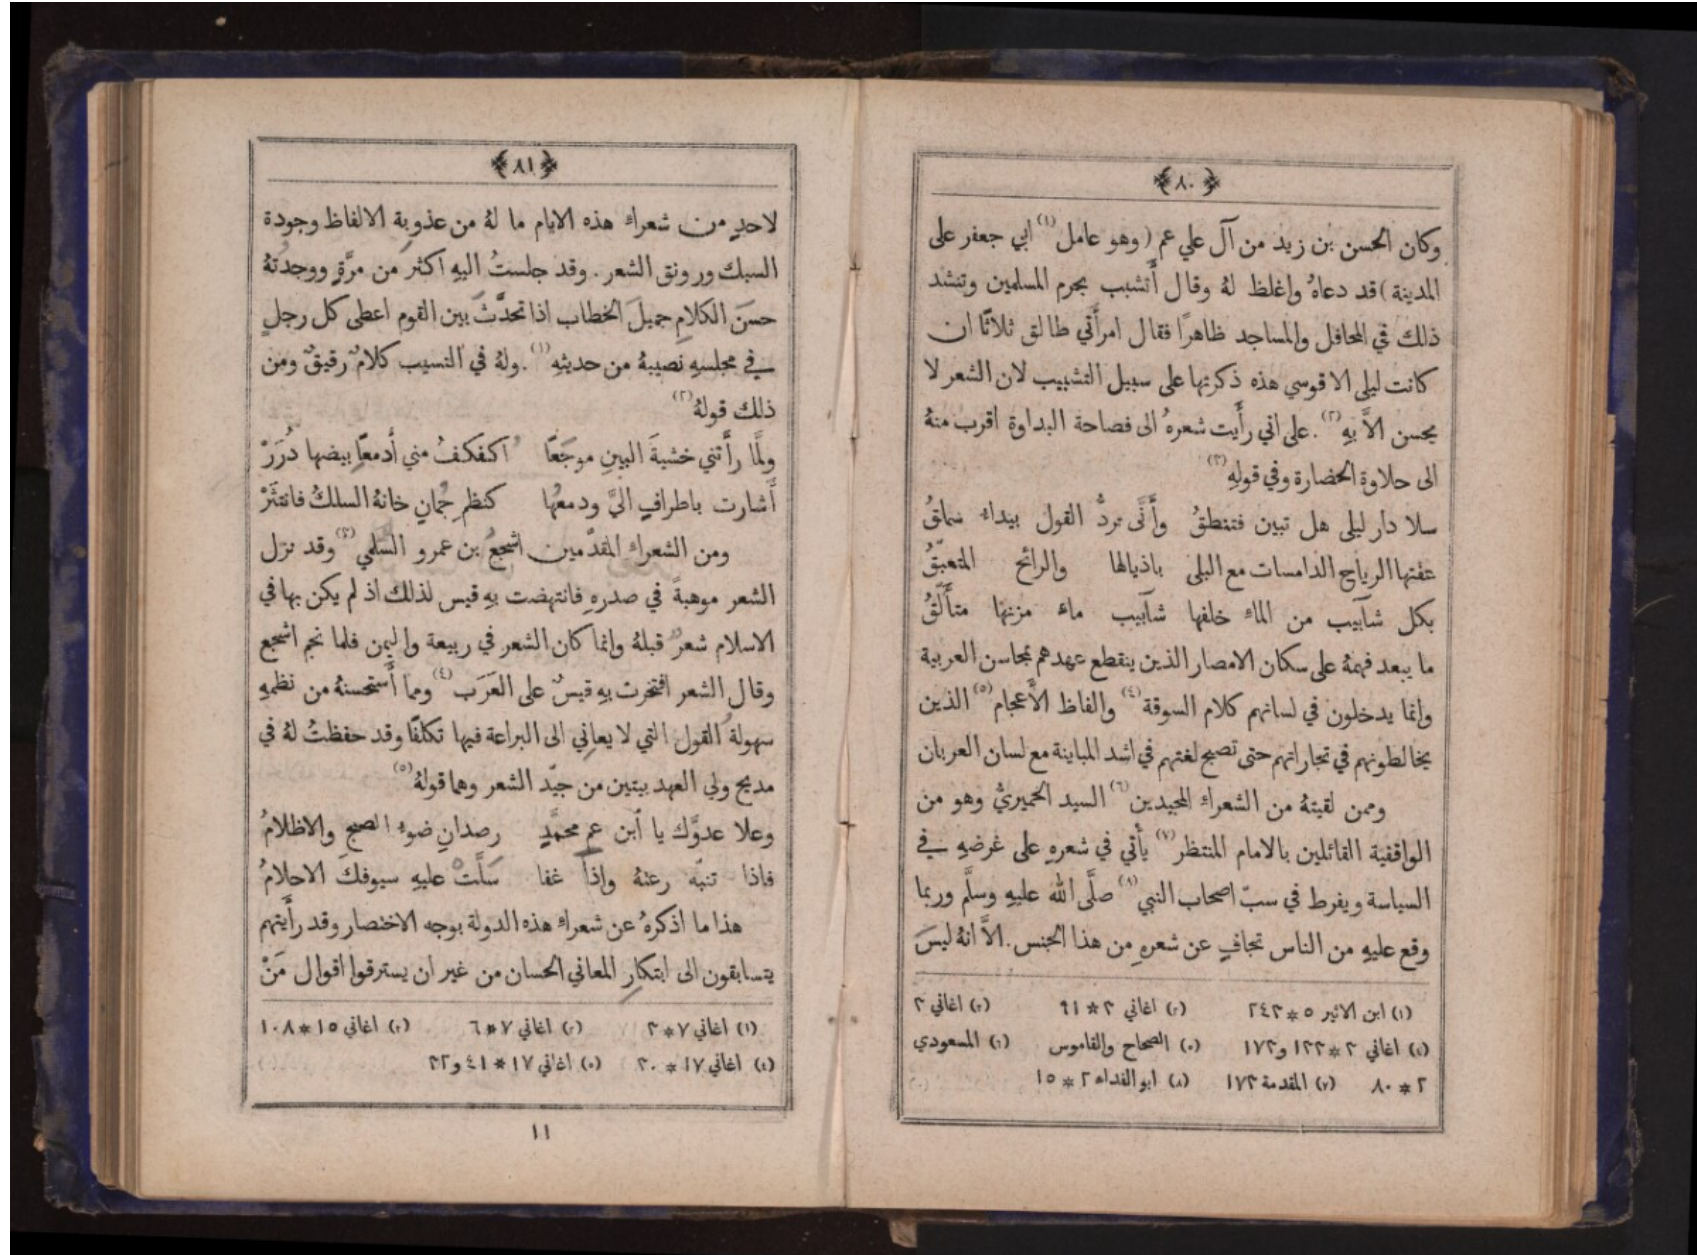 ﴿٨٠﴾
وكان الحسن بن زيد من آل علي عم (وهو عامل (١) ابي جعفر على
المدينة) قد دعاهُ واغلظ لهُ وقال أَتشبب بحرم المسلمين وتنشد
ذلك في المحافل والمساجد ظاهرًا فقال امرأَتي طالق ثلاثًا ان
كانت ليلى الا قوسي هذه ذكرتها على سبيل التشبيب لان الشعر لا
يحسن الاَّ بهِ (٢). على اني رأَيت شعرهُ الى فصاحة البداوة اقرب منهُ
الى حلاوة الحضارة وفي قولهِ (٣)
سلا دار ليلى هل تبين فتنطقُ وأَنَّى تردُّ القول بيداء سملقُ
عفتها الرياح الدامسات مع البلى باذيالها والرائح المتعبّقُ
بكل شآبيب من الماء خلفها شآبيب ماء مزنها متأَلّقُ
ما يبعد فهمهُ على سكان الامصار الذين ينقطع عهدهم بمحاسن العربية
وانما يدخلون في لسانهم كلام السوقة (٤) والفاظ الأَعجام (٥) الذين
يخالطونهم في تجاراتهم حتى تصبح لغتهم في اشد المباينة مع لسان العربان
وممن لقيتهُ من الشعراء المجيدين (٦) السيد الحميريُّ وهو من
الواقفية القائلين بالامام المنتظر (٧) يأتي في شعرهِ على غرضهِ في
السياسة ويفرط في سبّ اصحاب النبي (٨) صلَّى الله عليهِ وسلَّم وربما
وقع عليهِ من الناس تجافٍ عن شعرهِ من هذا الجنس. الاَّ انهُ ليسَ
(١) ابن الاثير ٥ * ٢٤٣ (٢) اغاني ٣ * ٩١ (٣) اغاني ٣
(٤) اغاني ٣ * ١٢٢ و١٧٣ (٥) الصحاح والقاموس (٦) المسعودي
٢ * ٨٠ (٧) المقدمة ١٧٣ (٨) ابو الفداء ٢ * ١٥
﴿٨١﴾
لاحدٍ من شعراء هذه الايام ما لهُ من عذوبة الالفاظ وجودة
السبك ورونق الشعر. وقد جلستُ اليهِ اكثر من مرَّةٍ ووجدتهُ
حسَنَ الكلامِ جميلَ الخطاب اذا تحدَّثَ بين القوم اعطى كل رجلٍ
في مجلسهِ نصيبهُ من حديثهِ (١). ولهُ في النسيب كلامٌ رقيقٌ ومن
ذلك قولهُ (٢)
ولمَّا رأَتني خشيةَ البينِ موجَعًا اكفكفُ مني أَدمعًا بيضها دُرَرْ
أَشارت باطرافٍ اليَّ ودمعُها كنظمِ جُمانٍ خانهُ السلكُ فانتثَرْ
ومن الشعراء المقدَّمين اشجعُ بن عمرو السُّلمي (٣) وقد نزل
الشعر موهبةً في صدرهِ فانتهضت بهِ قيس لذلك اذ لم يكن بها في
الاسلام شعرٌ قبلهُ وانما كان الشعر في ربيعة واليمن فلما نجم اشجع
وقال الشعر افتخرت بهِ قيسٌ على العَرَب (٤) ومما أَستحسنهُ من نظمهِ
سهولةُ القول التي لا يعاني الى البراعة فيها تكلفًا وقد حفظتُ لهُ في
مديح ولي العهد بيتين من جيّد الشعر وهما قولهُ (٥)
وعلا عدوَّك يا أبن عم محمَّدٍ رصدانِ ضوء الصبحِ والاظلامُ
فاذا تنبّه رعتهُ واذا غفا سَلَّتْ عليهِ سيوفك الاحلامُ
هذا ما اذكرهُ عن شعراء هذه الدولة بوجه الاختصار وقد رأَيتهم
يتسابقون الى ابتكارِ المعاني الحسان من غير ان يسترقوا اقوال مَنْ
(١) اغاني ٧ * ٣ (٢) اغاني ٧ * ٦ (٣) اغاني ١٥ * ١٠٨
(٤) اغاني ١٧ * ٣٠ (٥) اغاني ١٧ * ٤١ و٣٣
١١